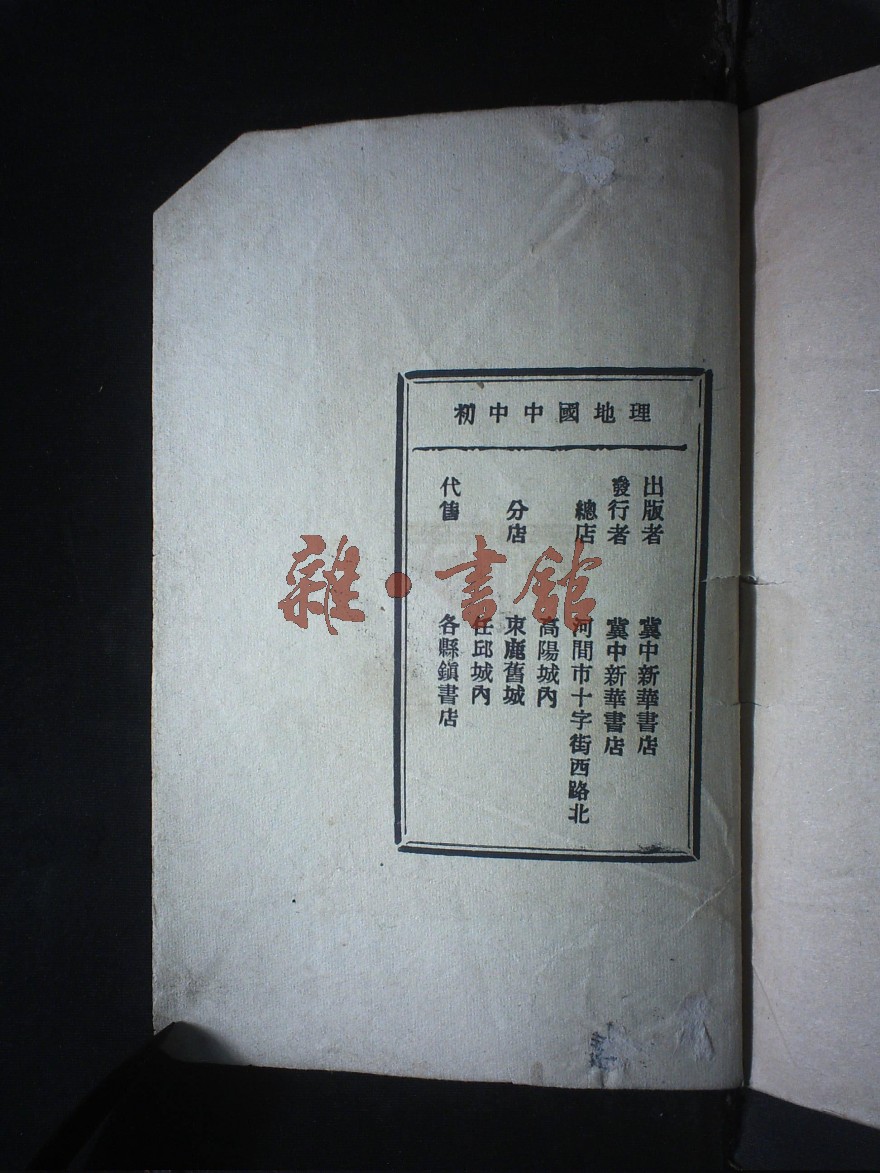 初中中國地理
出版者 冀中新華書店
發行者 冀中新華書店
總店 河間市十字街西路北
高陽城內
分店 束鹿舊城
任邱城內
代售 各縣鎮書店
雜·書館